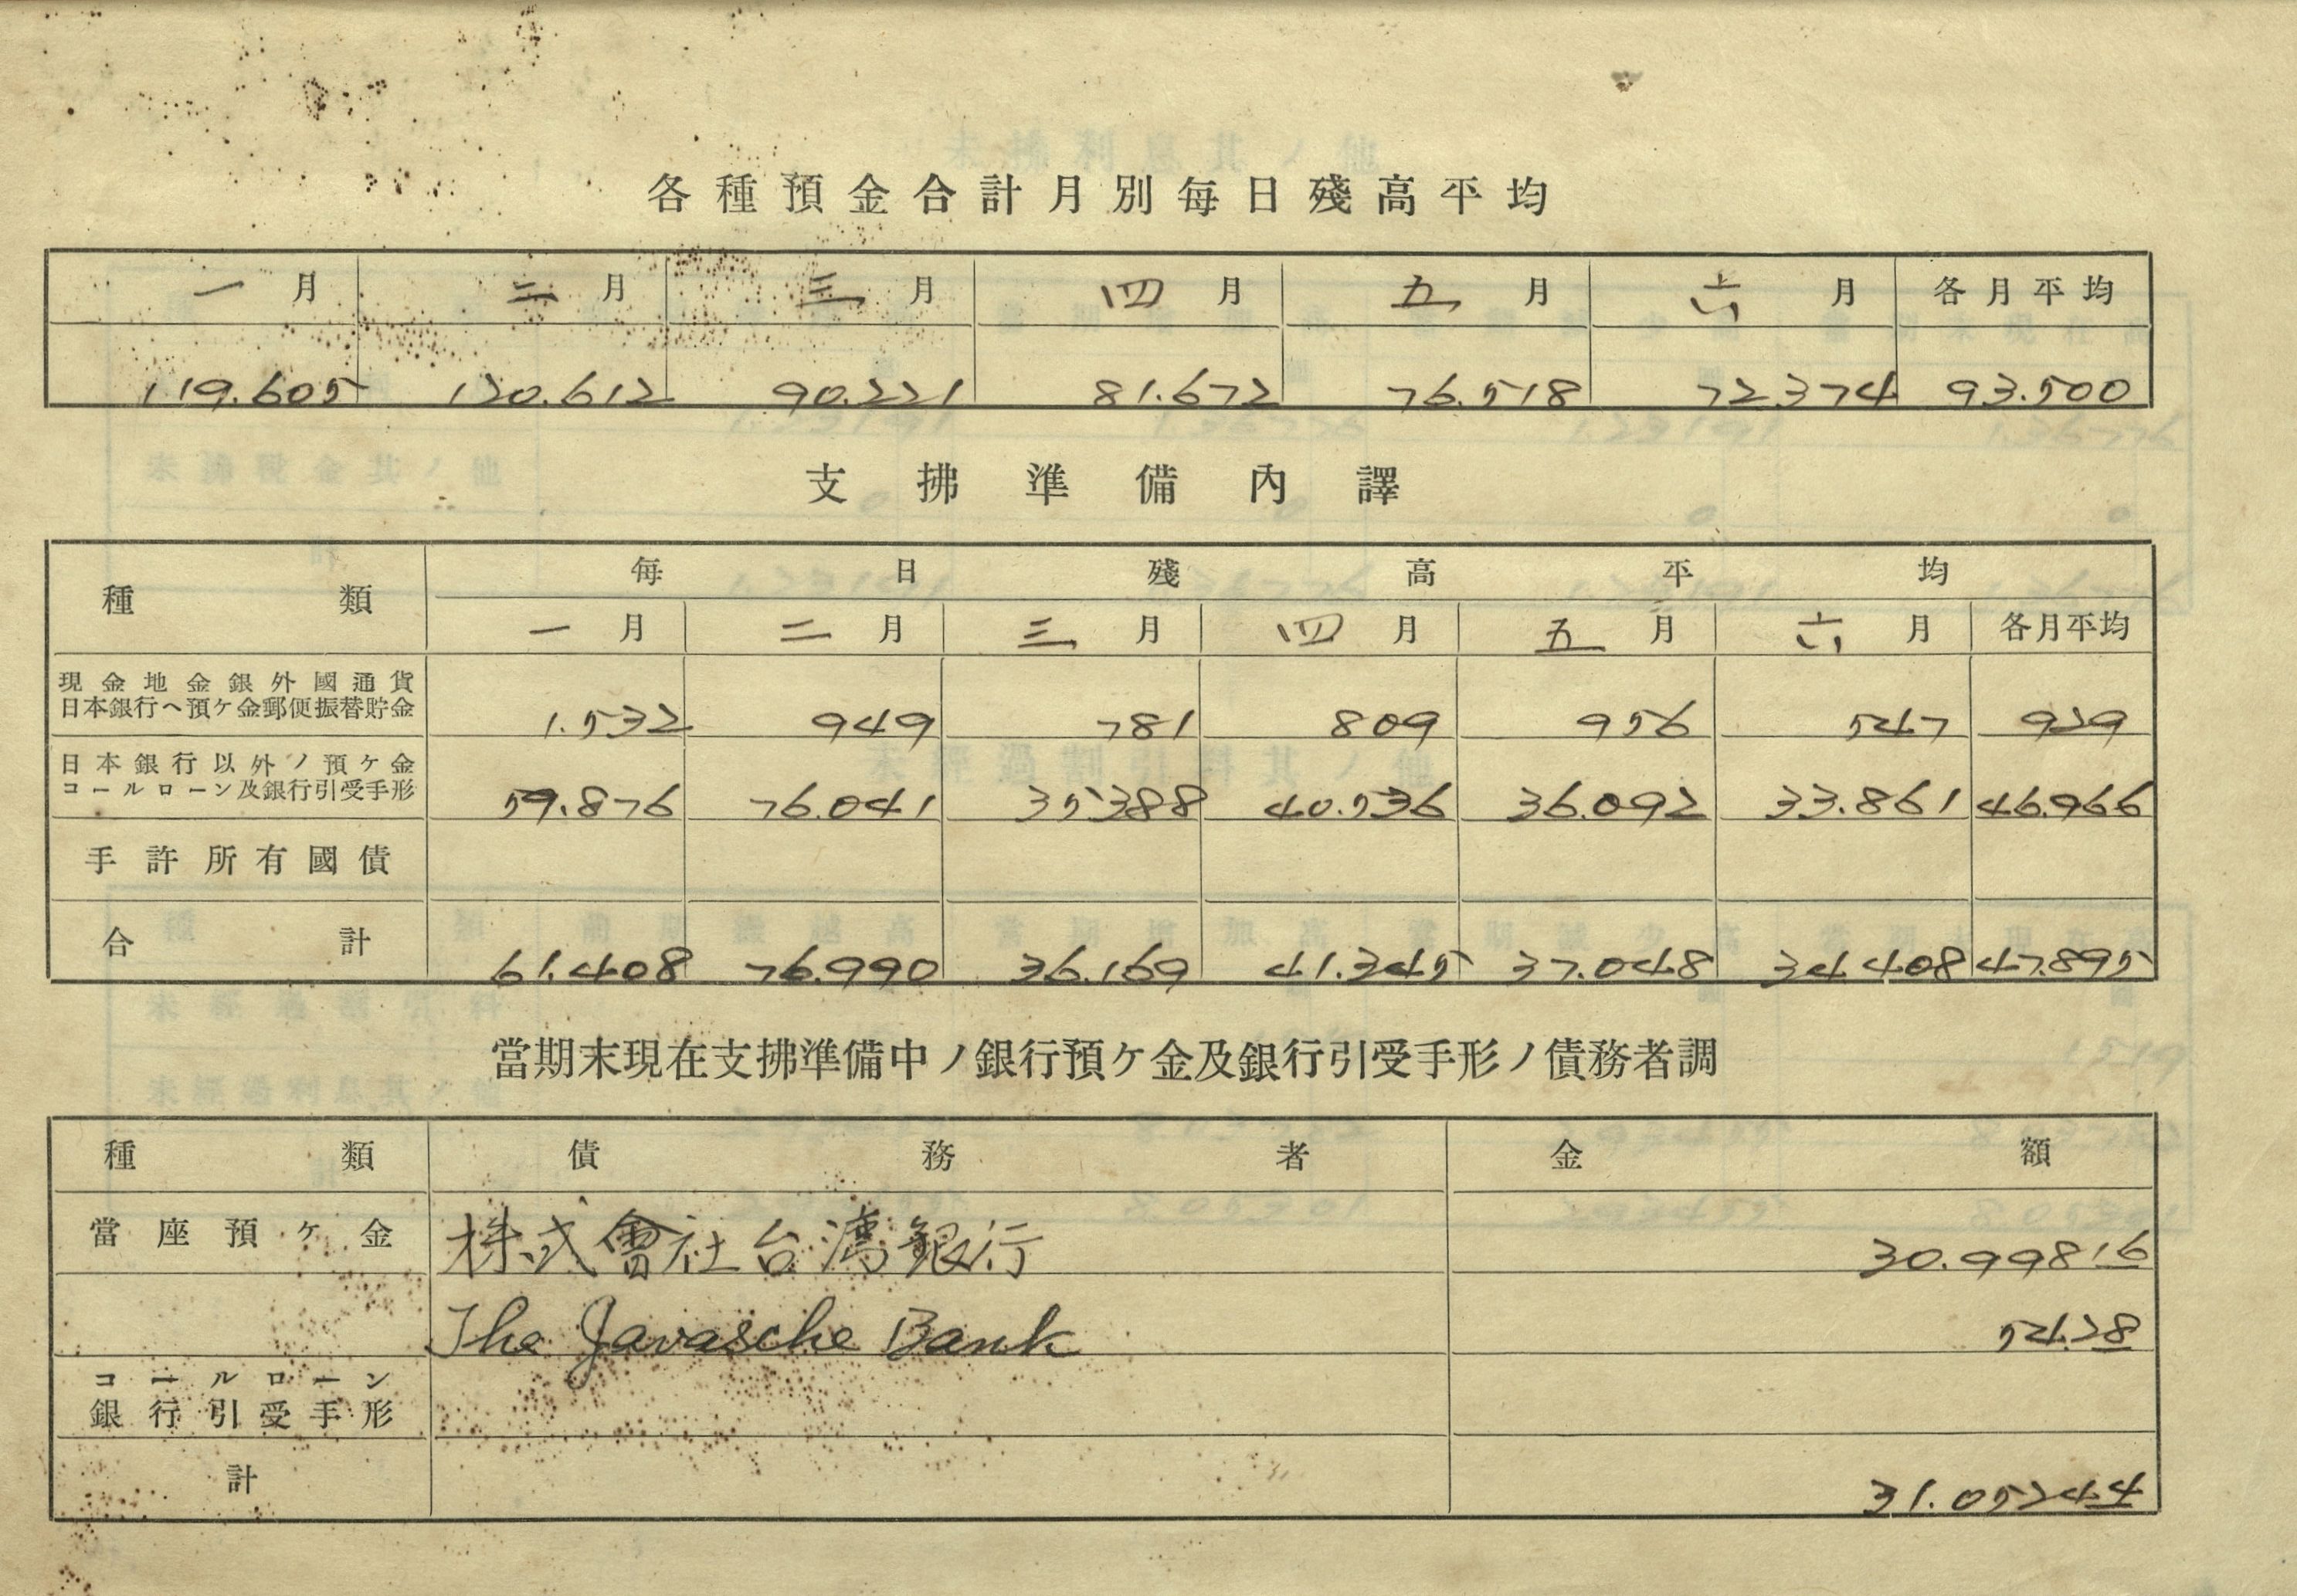 各種預金合計月別每日殘高平均
一月 二月 三月 四月 五月 六月 各月平均
119.605 120.612 90.221 81.672 76.518 72.374 93.500
支拂準備內譯
種類 每日殘高平均
一月 二月 三月 四月 五月 六月 各月平均
現金地金銀外國通貨
日本銀行ヘ預ケ金郵便振替貯金 1.532 949 781 809 956 547 929
日本銀行以外ノ預ケ金
コールローン及銀行引受手形 59.876 76.041 35388 40.536 36.092 33.861 46.966
手許所有國債
合計 61.408 76.990 36.169 41.345 37.048 34.408 47.895
當期末現在支拂準備中ノ銀行預ケ金及銀行引受手形ノ債務者調
種類 債務者 金額
當座預ケ金 株式會社台灣銀行 30.99816
The Javasche Bank 54.28
コールローン
銀行引受手形
計 31.05244